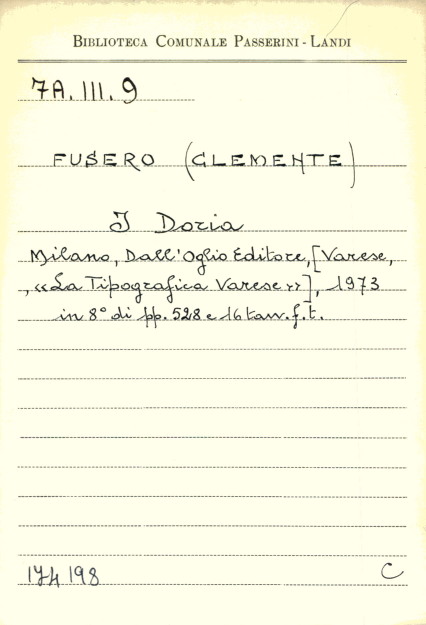 BIBLIOTECA COMUNALE PASSERINI - LANDI
7A. III. 9
FUSERO (CLEMENTE)
I Doria
Milano, Dall'Oglio Editore, [Varese,
, «La Tipografica Varese»], 1973
in 8° di pp. 528 e 16 tav. f. t.
174198 C